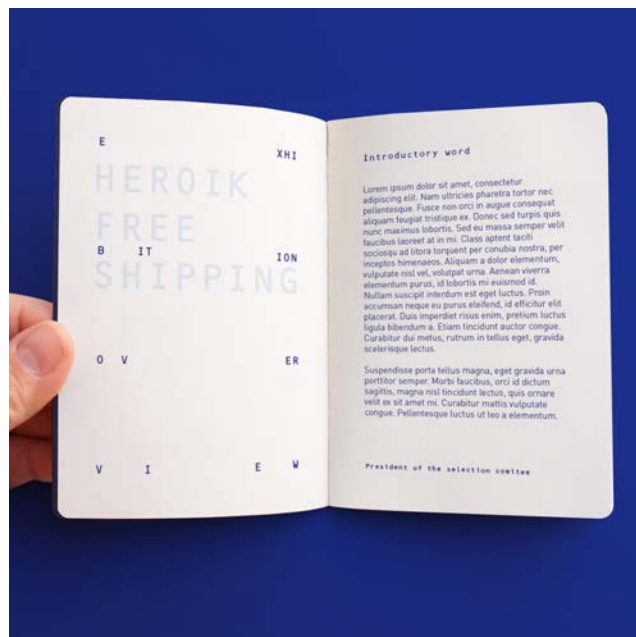 E
XHI
HEROIK
FREE
B IT ION
SHIPPING
O V ER
V I E W
Introductory word
Lorem ipsum dolor sit amet, consectetur
adipiscing elit. Nam ultricies pharetra tortor nec
pellentesque. Fusce non orci in augue consequat
aliquam feugiat tristique ex. Donec sed turpis quis
nunc maximus lobortis. Sed eu massa semper velit
faucibus laoreet at in mi. Class aptent taciti
sociosqu ad litora torquent per conubia nostra, per
inceptos himenaeos. Aliquam a dolor elementum,
vulputate nisl vel, volutpat urna. Aenean viverra
elementum purus, id lobortis mi euismod id.
Nullam suscipit interdum est eget luctus. Proin
accumsan neque eu purus eleifend, id efficitur elit
placerat. Duis imperdiet risus enim, pretium luctus
ligula bibendum a. Etiam tincidunt auctor congue.
Curabitur dui metus, rutrum in tellus eget, gravida
scelerisque lectus.
Suspendisse porta tellus magna, eget gravida urna
porttitor semper. Morbi faucibus, orci id dictum
sagittis, magna nisl tincidunt lectus, quis ornare
velit ex sit amet mi. Curabitur mattis vulputate
congue. Pellentesque luctus ut leo a elementum.
President of the selection comitee